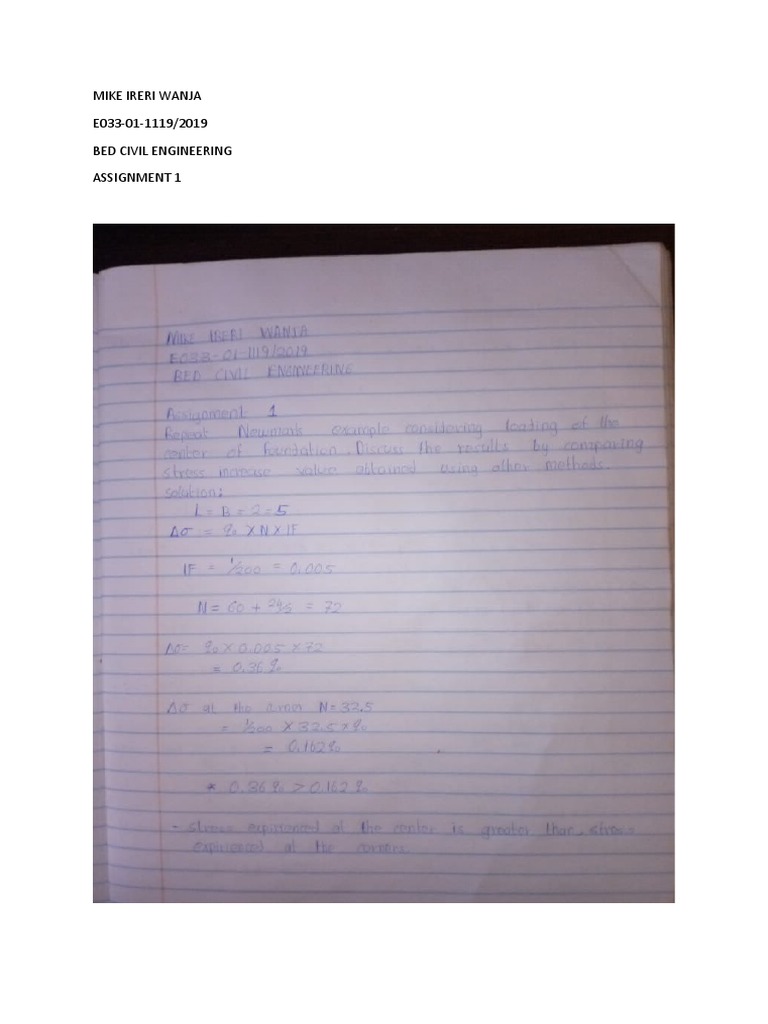 MIKE IRERI WANJA
E033-01-1119/2019
BED CIVIL ENGINEERING
ASSIGNMENT 1
MIKE IRERI WANJA
E033-01-1119/2019
BED CIVIL ENGINEERING
Assignment 1
Repeat Newmark example considering loading of the
center of foundation. Discuss the results by comparing
stress increase value obtained using other methods.
Solution:
L = B = 2 = 5
Δσ = q₀ × N × IF
IF = 1/200 = 0.005
N = 60 + 24/5 = 72
Δσ = q₀ × 0.005 × 72
= 0.36 q₀
Δσ at the corner N = 32.5
= 1/200 × 32.5 × q₀
= 0.162 q₀
* 0.36 q₀ > 0.162 q₀
- stress expirienced at the center is greater than stress
expirienced at the corners.